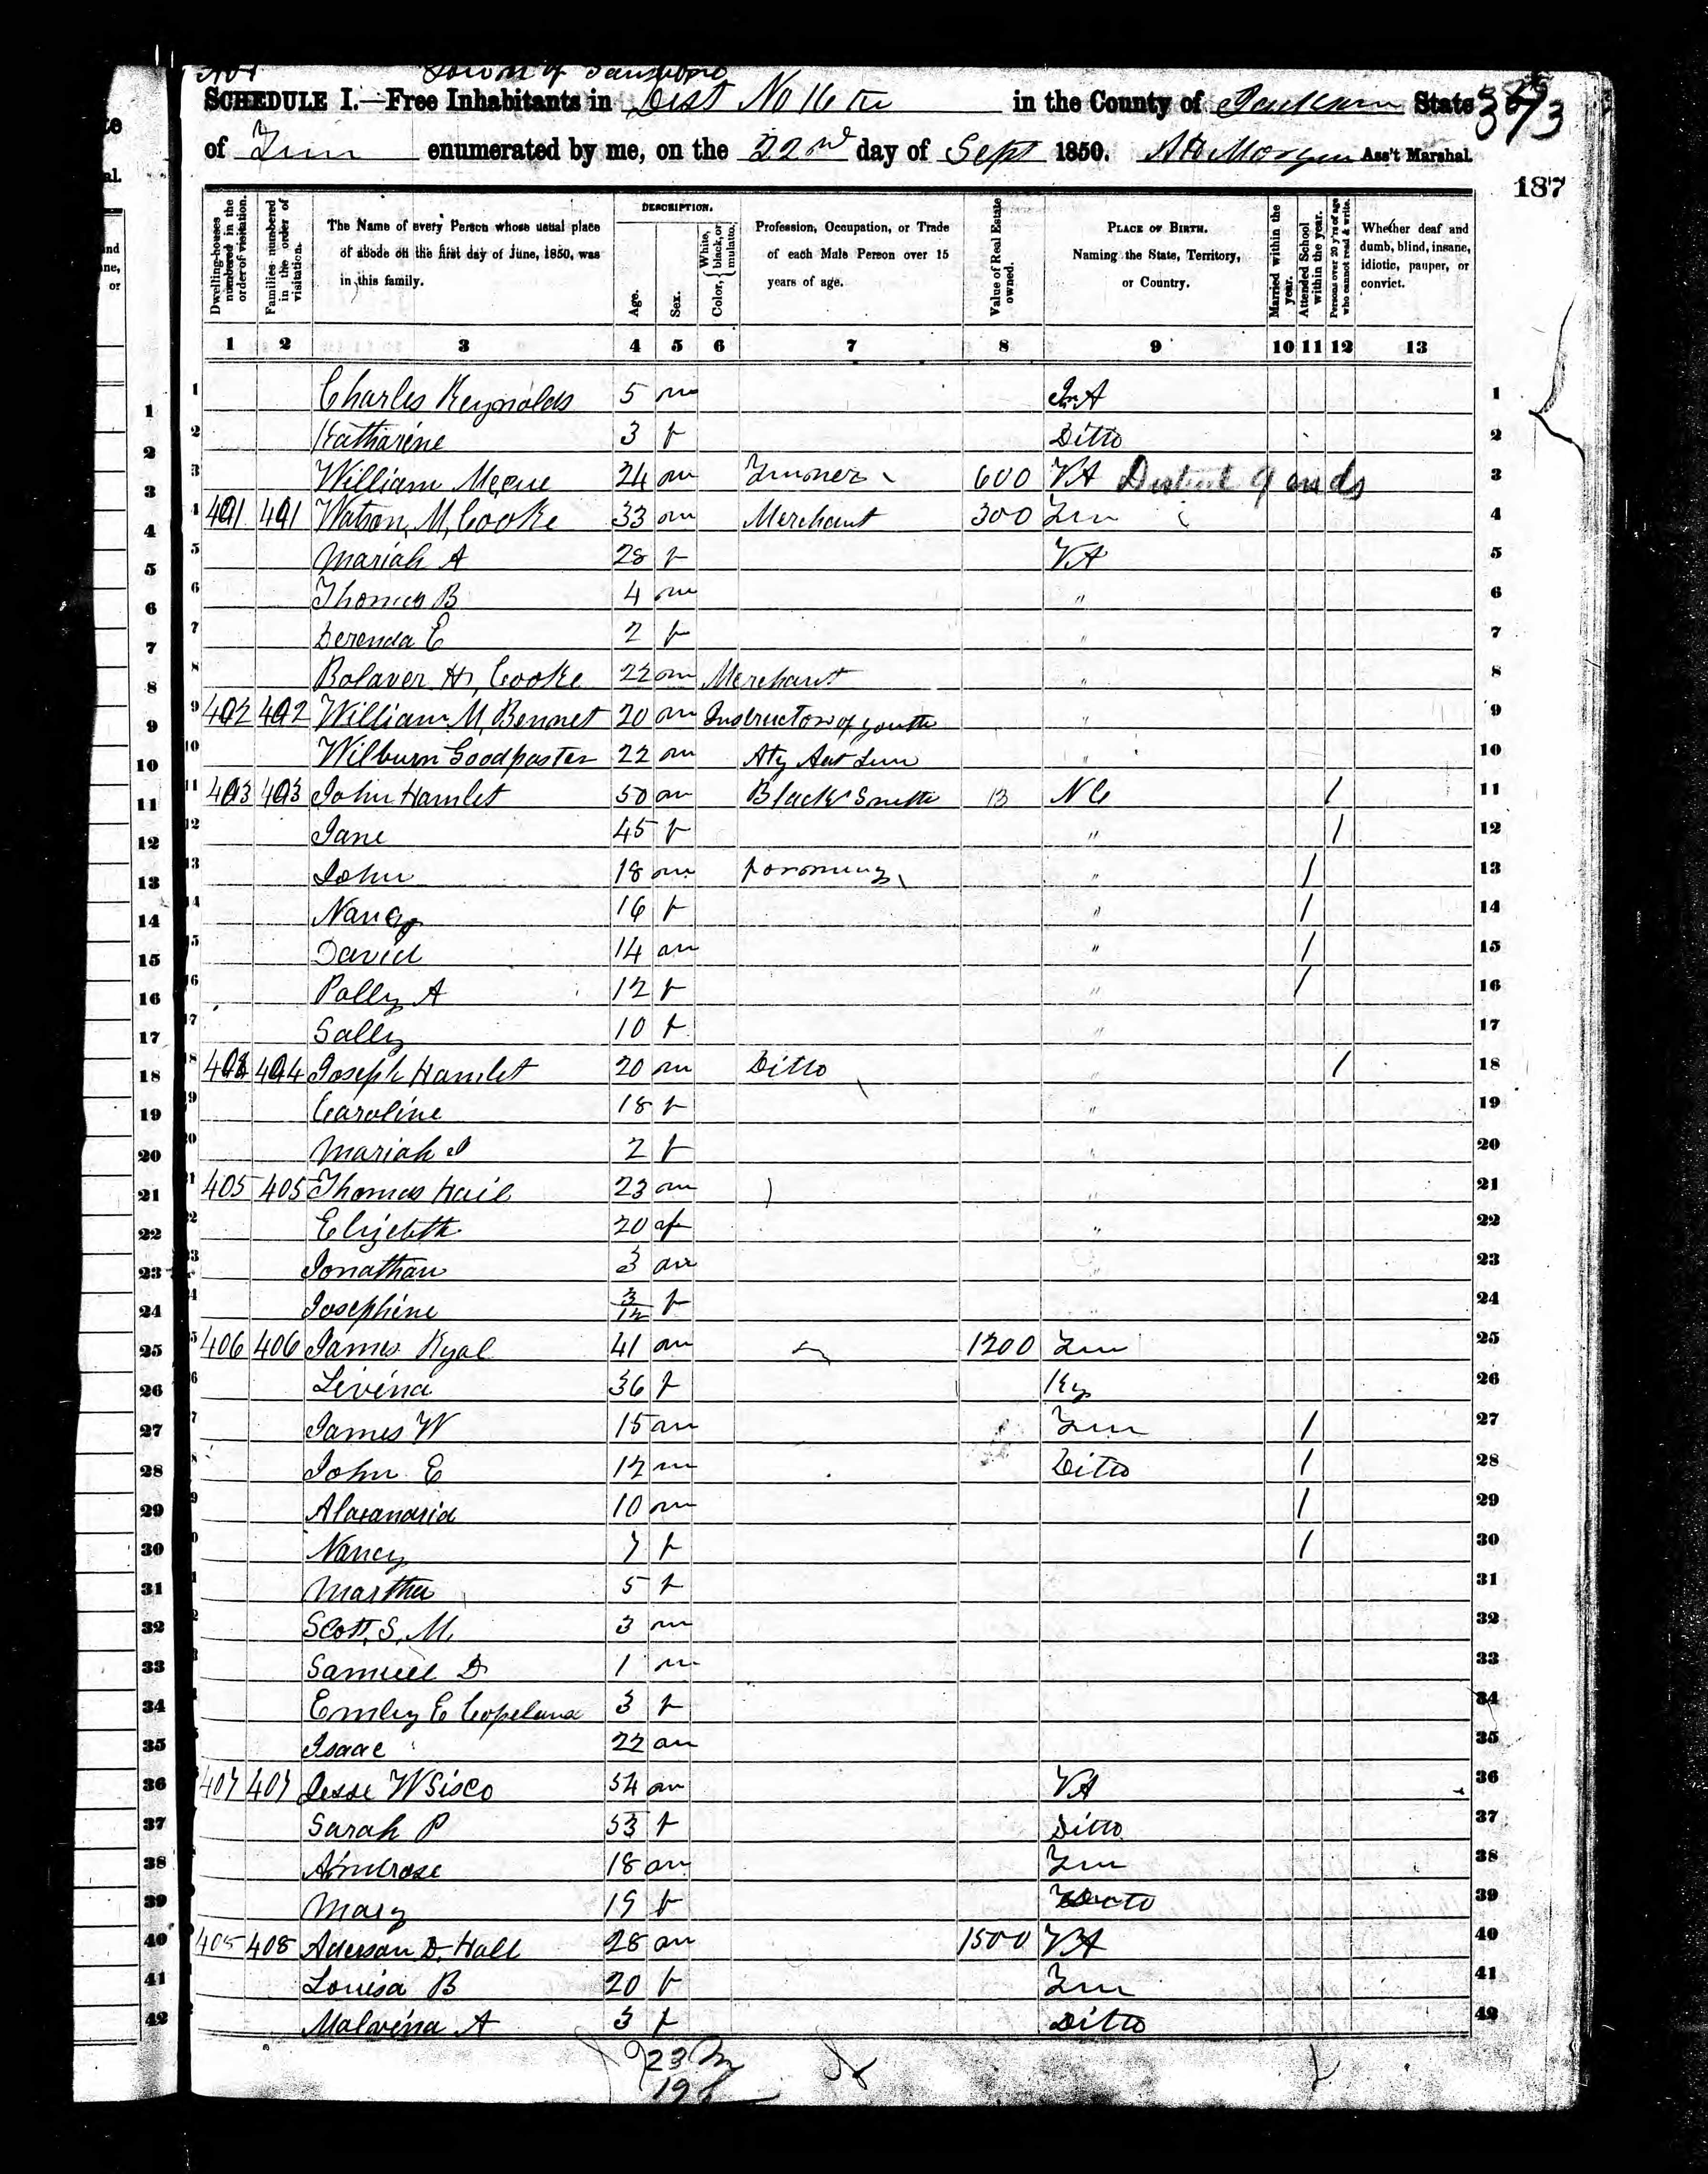 Town of
SCHEDULE I.—Free Inhabitants in Dist No 16 in the County of Jackson State 373
of Tenn enumerated by me, on the 22nd day of Sept 1850. Morgan Ass't Marshal.
187
Dwelling-houses numbered in the order of visitation.
Families numbered in the order of visitation.
The Name of every Person whose usual place of abode on the first day of June, 1850, was in this family.
DESCRIPTION.
Age.
Sex.
Color, { White, black, or mulatto.
Profession, Occupation, or Trade of each Male Person over 15 years of age.
Value of Real Estate owned.
PLACE OF BIRTH. Naming the State, Territory, or Country.
Married within the year.
Attended School within the year.
Persons over 20 y'rs of age who cannot read & write.
Whether deaf and dumb, blind, insane, idiotic, pauper, or convict.
1 2 3 4 5 6 7 8 9 10 11 12 13
1 Charles Reynolds 5 m 1
2 Katharine 3 f Ditto 2
3 William 24 m 600 VA District 9 ends 3
4 401 401 Watson, M, Cooke 33 m Merchant 300 Tenn 4
5 Mariah A 28 f VA 5
6 Thomas B 4 m " 6
7 E 2 f " 7
8 H, Cooke 22 m Merchant " 8
9 402 402 William M, Bennet 20 m Instructor of youth " 9
10 Wilburn Goodpaster 22 m Aty " 10
11 403 403 John Hamlet 50 m Black Smith NC / 11
12 Jane 45 f " / 12
13 John 18 m " / 13
14 Nancy 16 f " / 14
15 David 14 m " / 15
16 Polly A 12 f " / 16
17 Sally 10 f " 17
18 404 404 Joseph Hamlet 20 m Ditto " / 18
19 Caroline 18 f " 19
20 Mariah 2 f " 20
21 405 405 Thomas Hail 23 m " 21
22 Elizebth 20 f " 22
23 Jonathan 3 m " 23
24 Josephine 3/12 f " 24
25 406 406 James Ryal 41 m 1200 Tenn 25
26 Livina 36 f Ky 26
27 James W 15 m Tenn / 27
28 John E 12 m Ditto / 28
29 10 m / 29
30 Nancy 7 f / 30
31 Martha 5 f 31
32 Scott, S, M, 3 m 32
33 Samuel D 1 m 33
34 Emley E Copeland 3 f 34
35 Isaac 22 m 35
36 407 407 Jesse W Sisco 54 m VA 36
37 Sarah P 53 f Ditto 37
38 Ambrose 18 m Tenn 38
39 Mary 19 f Ditto 39
40 408 408 Aderson D. Hall 28 m 1500 VA 40
41 Louisa B 20 f Tenn 41
42 Malvina A 3 f Ditto 42
23 m
19 f